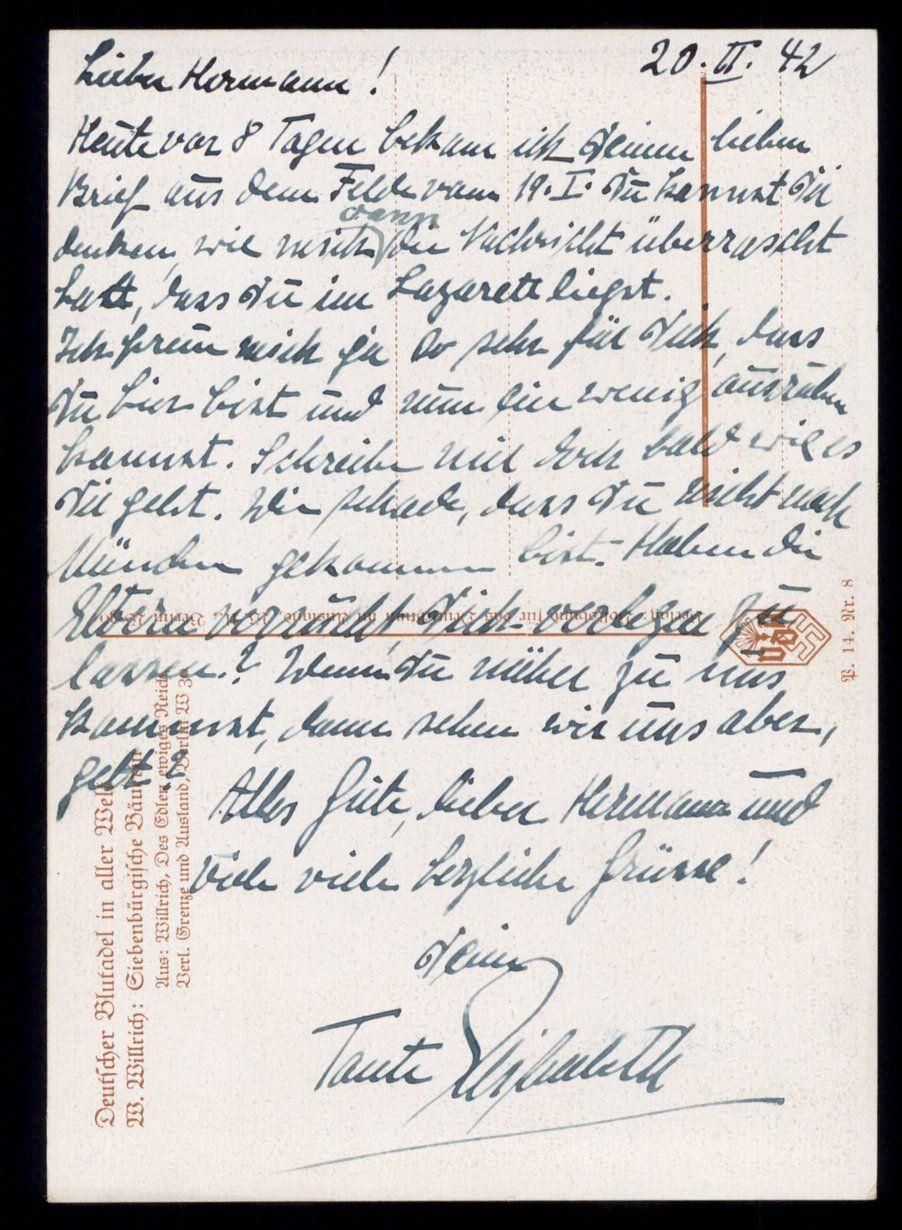 20. II. 42
Lieber Hermann!
Heute vor 8 Tagen bekam ich Deinen lieben
Brief aus dem Felde vom 19. I. Du kannst Dir
denken, wie mich dann die Nachricht überrascht
hatt, dass Du im Lazarett liegst.
Ich freue mich ja so sehr für Dich, dass
Du hier bist und nun ein wenig ausruhen
kannst. Schreibe mir doch bald wie es
Dir geht. Wie schade, dass Du nicht nach
München gekommen bist. Haben die
Eltern versucht Dich verlegen zu
lassen? Wenn Du näher zu uns
kommst, dann sehen wir uns aber,
gelt?
Alles Gute, lieber Hermann und
viele viele herzliche Grüsse!
Dein
Tante Elisabeth
Deutscher Blutadel in aller Welt
W. Willrich: Siebenbürgische Bäuerin
Aus: Willrich, Des Edlen ewiges Reich
Verl. Grenze und Ausland, Berlin W 30
für das Deutschtum im Ausland
P. 14. Nr. 8